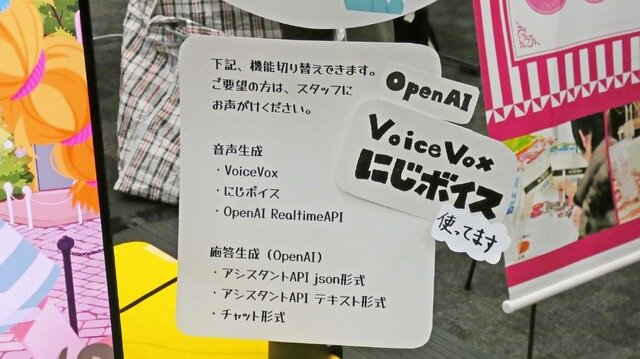 下記、機能切り替えできます。
ご要望の方は、スタッフに
お声がけください。
音声生成
・VoiceVox
・にじボイス
・OpenAI RealtimeAPI
応答生成（OpenAI）
・アシスタントAPI json形式
・アシスタントAPI テキスト形式
・チャット形式
OpenAI
VoiceVox
にじボイス
使ってます